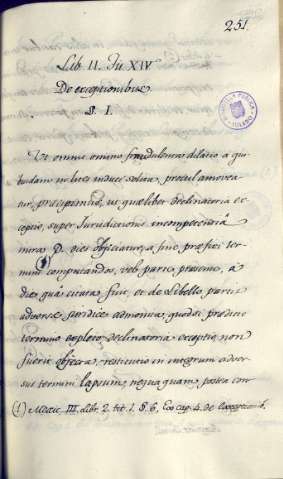 251.
Lib. II. Tit. XIV
De exceptionibus
§. I.
Ut omnis omnino fraudulenta dilatio a qui-
busdam in lites induci solita, procul amovea-
tur, praecipimus, ut quaelibet declinatoria ex-
ceptio, super Jurisdictionis incompetentia
intra 9. dies objiciatur, a sine praefixi ter-
mini computandos, vel partis praesente, a
die qua citata fuit, et de Libello partis
adversae juridice admonita, quod si praedicto
termino expleto, declinatoria exceptio non
fuerit objecta, restitutio in integrum adver
sus termini lapsum, nequaquam postea con
(1) Mexic. III. Libr. 2. tit. 1. §. 6, Eos cap. 4. de exception. 6.